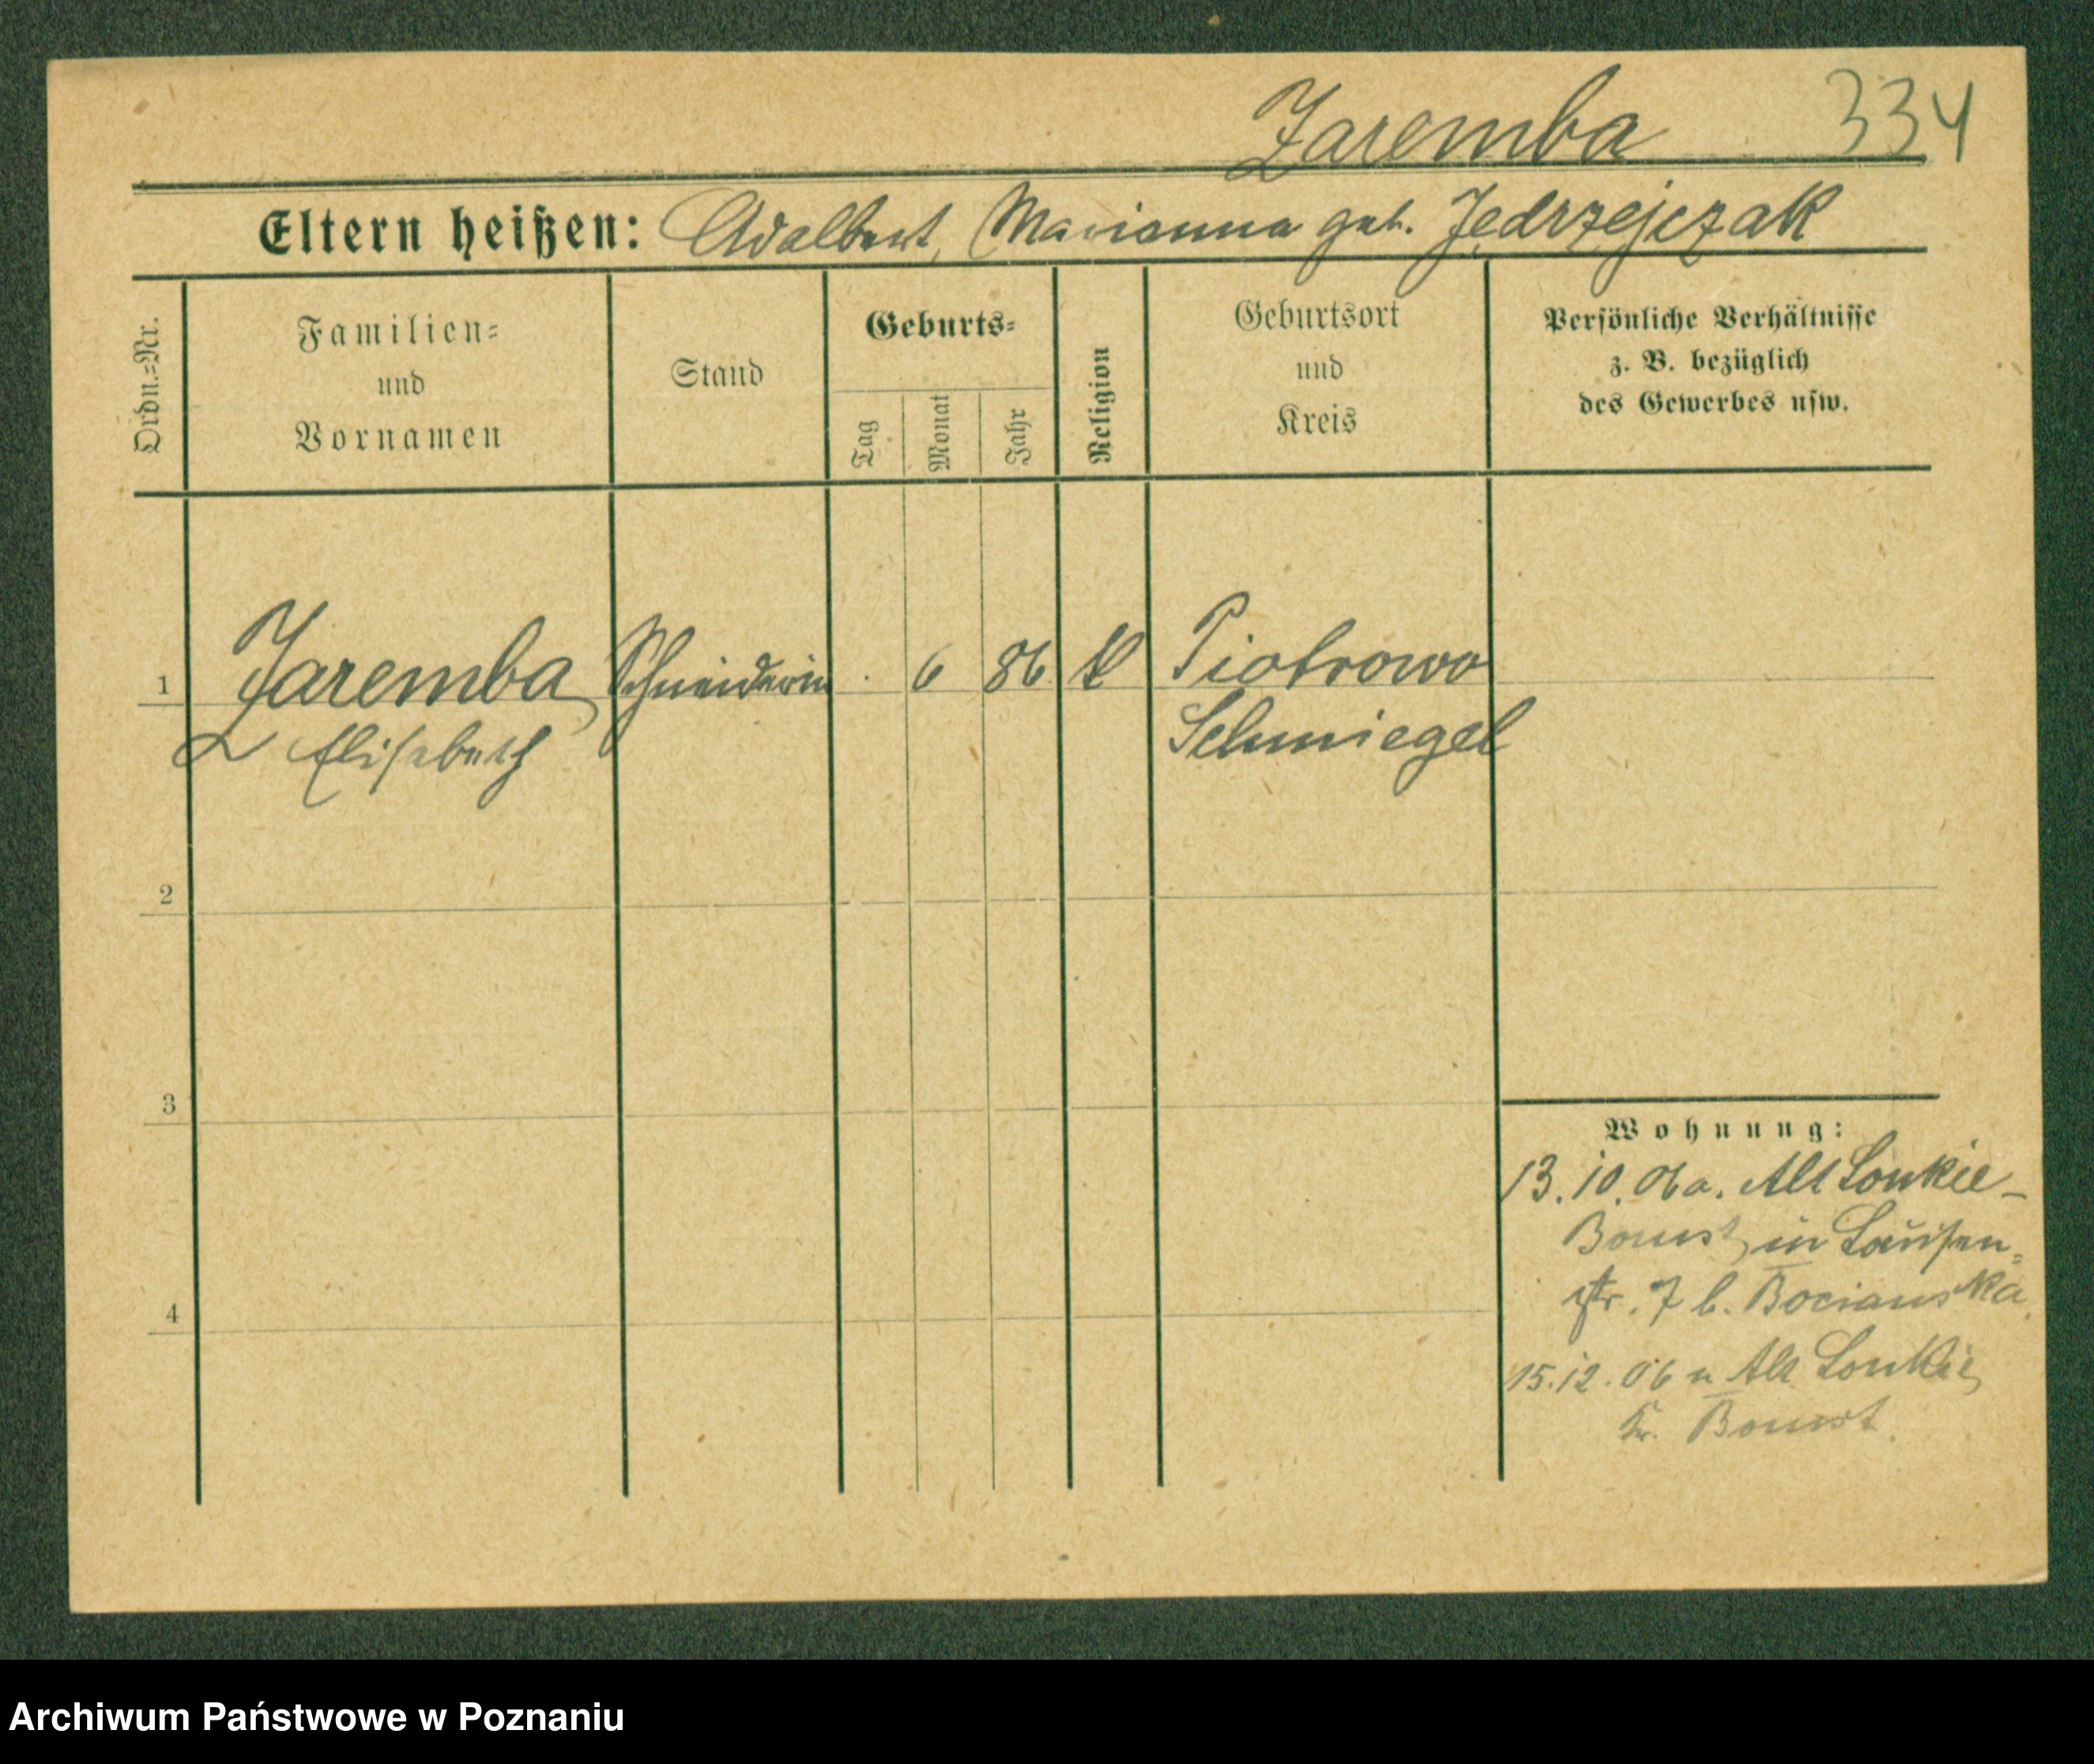 Zaremba 334
Eltern heißen: Adalbert, Marianna geb. Jedrzejczak
Ordn.-Nr.
Familien-
und
Vornamen
Stand
Geburts-
Tag
Monat
Jahr
Religion
Geburtsort
und
Kreis
Persönliche Verhältnisse
z. B. bezüglich
des Gewerbes usw.
1 Zaremba Schneiderin 6 86 k Piotrowo
Elisabeth Schmiegel
2
3
4
Wohnung:
13. 10. 06 a. Alt Lonkie-
Bomst, in Louisen-
str. 7 b. Bocianska.
15. 12. 06 n Alt Lonkie,
Kr. Bomst.
Archiwum Państwowe w Poznaniu